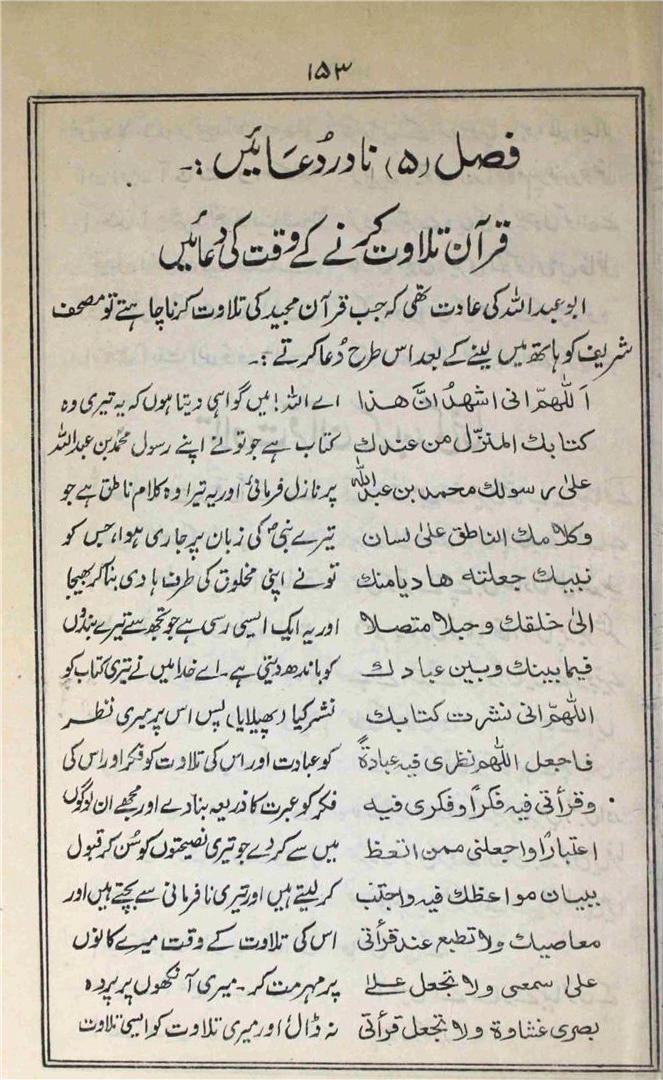 ۱۵۳
فصل (۵) نادر دُعَائیں :۔
قرآن تلاوت کرنے کے وقت کی دعائیں
ابو عبد اللہ کی عادت تھی کہ جب قرآن مجید کی تلاوت کرنا چاہتے تو مصحف
شریف کو ہاتھ میں لینے کے بعد اس طرح دُعا کرتے :۔
اَللّٰھمّ انی اشھدُ انَّ ھٰذا
کتابك المنزّل من عندك
علیٰ رسولك محمد بن عبداللّٰه
وکلامك الناطق علیٰ لسان
نبیك جعلته ھادیا منك
الیٰ خلقك وحبلا متصلا
فیما بینك وبین عبادك
اللھمّ انی نشرت کتابك
فاجعل اللھم نظری فیه عبادةً
وقرأتی فیه فکراً وفکری فیه
اعتباراً واجعلنی ممن اتعظ
ببیان مواعظك فیه واجتنب
معاصیك ولا تطبع عند قرأتی
علیٰ سمعی ولا تجعل علےٰ
بصری غشاوة ولا تجعل قرأتی
اے اللہ! میں گواہی دیتا ہوں کہ یہ تیری وہ
کتاب ہے جو تونے اپنے رسول محمدؐ بن عبداللہ
پر نازل فرمائی اور یہ تیرا وہ کلام ناطق ہے جو
تیرے نبیؐ کی زبان پر جاری ہوا، جس کو
تونے اپنی مخلوق کی طرف ہادی بنا کر بھیجا
اور یہ ایک ایسی رسی ہے جو تجھ سے تیرے بندوں
کو باندھ دیتی ہے۔ اے خدا میں نے تیری کتاب کو
نشر کیا (پھیلایا) پس اس پر میری نظر
کو عبادت اور اس کی تلاوت کو فکر اور اس کی
فکر کو عبرت کا ذریعہ بنا دے اور مجھے ان لوگوں
میں سے کر دے جو تیری نصیحتوں کو سُن کر قبول
کر لیتے ہیں اور تیری نافرمانی سے بچتے ہیں اور
اس کی تلاوت کے وقت میرے کانوں
پر مہر مت کر۔ میری آنکھوں پر پردہ
نہ ڈال اور میری تلاوت کو ایسی تلاوت